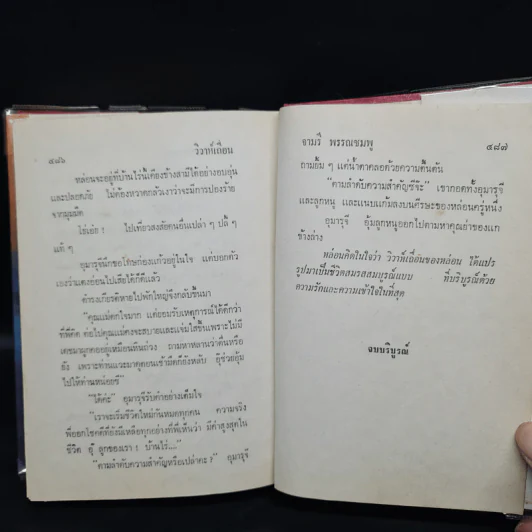 ๔๘๖
วิวาห์เถื่อน
หล่อนจะอยู่ที่บ้านไร่นี้เคียงข้างสามีได้อย่างอบอุ่น
และปลอดภัย ไม่ต้องหวาดกลัวเงาว่าจะมีการปองร้าย
จากมุมมืด
โธ่เอ๋ย ! ไปเที่ยวสงสัยคนอื่นเปล่า ๆ ปลี้ ๆ
แท้ ๆ
อุมารุจีนึกขอโทษก่องแก้วอยู่ในใจ แต่บอกตัว
เองว่าแตงอ่อนไปเสียได้ก็ดีแล้ว
ดำรงเกียรติหายไปพักใหญ่จึงกลับขึ้นมา
"คุณแม่ตกใจมาก แต่ยอมรับเหตุการณ์ได้ดีกว่า
ที่พี่คิด ต่อไปคุณแม่คงจะสบายและแจ่มใสขึ้นเพราะไม่มี
ใครมาผูกคออยู่เหมือนหินถ่วง ถามหาหลานว่าตื่นหรือ
ยัง เพราะท่านแวะมาดูตอนเช้ามืดก็ยังหลับ อุ๊ช่วยอุ้ม
ไปให้ท่านหน่อยซี"
"ได้ค่ะ" อุมารุจีรับคำอย่างเต็มใจ
"เราจะเริ่มชีวิตใหม่กันหมดทุกคน ความจริง
พี่ออกโชคดีที่ยังมีเหลือทุกอย่างที่พี่เห็นว่า มีค่าสูงสุดใน
ชีวิต อุ๊ ลูกของเรา ! บ้านไร่...."
"ตามลำดับความสำคัญหรือเปล่าคะ ?" อุมารุจี
จามรี พรรณชมพู
๔๘๗
ถามยิ้ม ๆ แต่น้ำตาคลอด้วยความตื้นตัน
"ตามลำดับความสำคัญซีจ๊ะ" เขากอดทั้งอุมารุจี
และลูกหนู และแนบแก้มลงบนศีรษะของหล่อนครู่หนึ่ง
อุมารุจี อุ้มลูกหนูออกไปตามหาคุณย่าของแก
ข้างล่าง
หล่อนคิดในใจว่า วิวาห์เถื่อนของหล่อน ได้แปร
รูปมาเป็นชีวิตสมรสสมบูรณ์แบบ ที่บริบูรณ์ด้วย
ความรักและความเข้าใจในที่สุด
จบบริบูรณ์